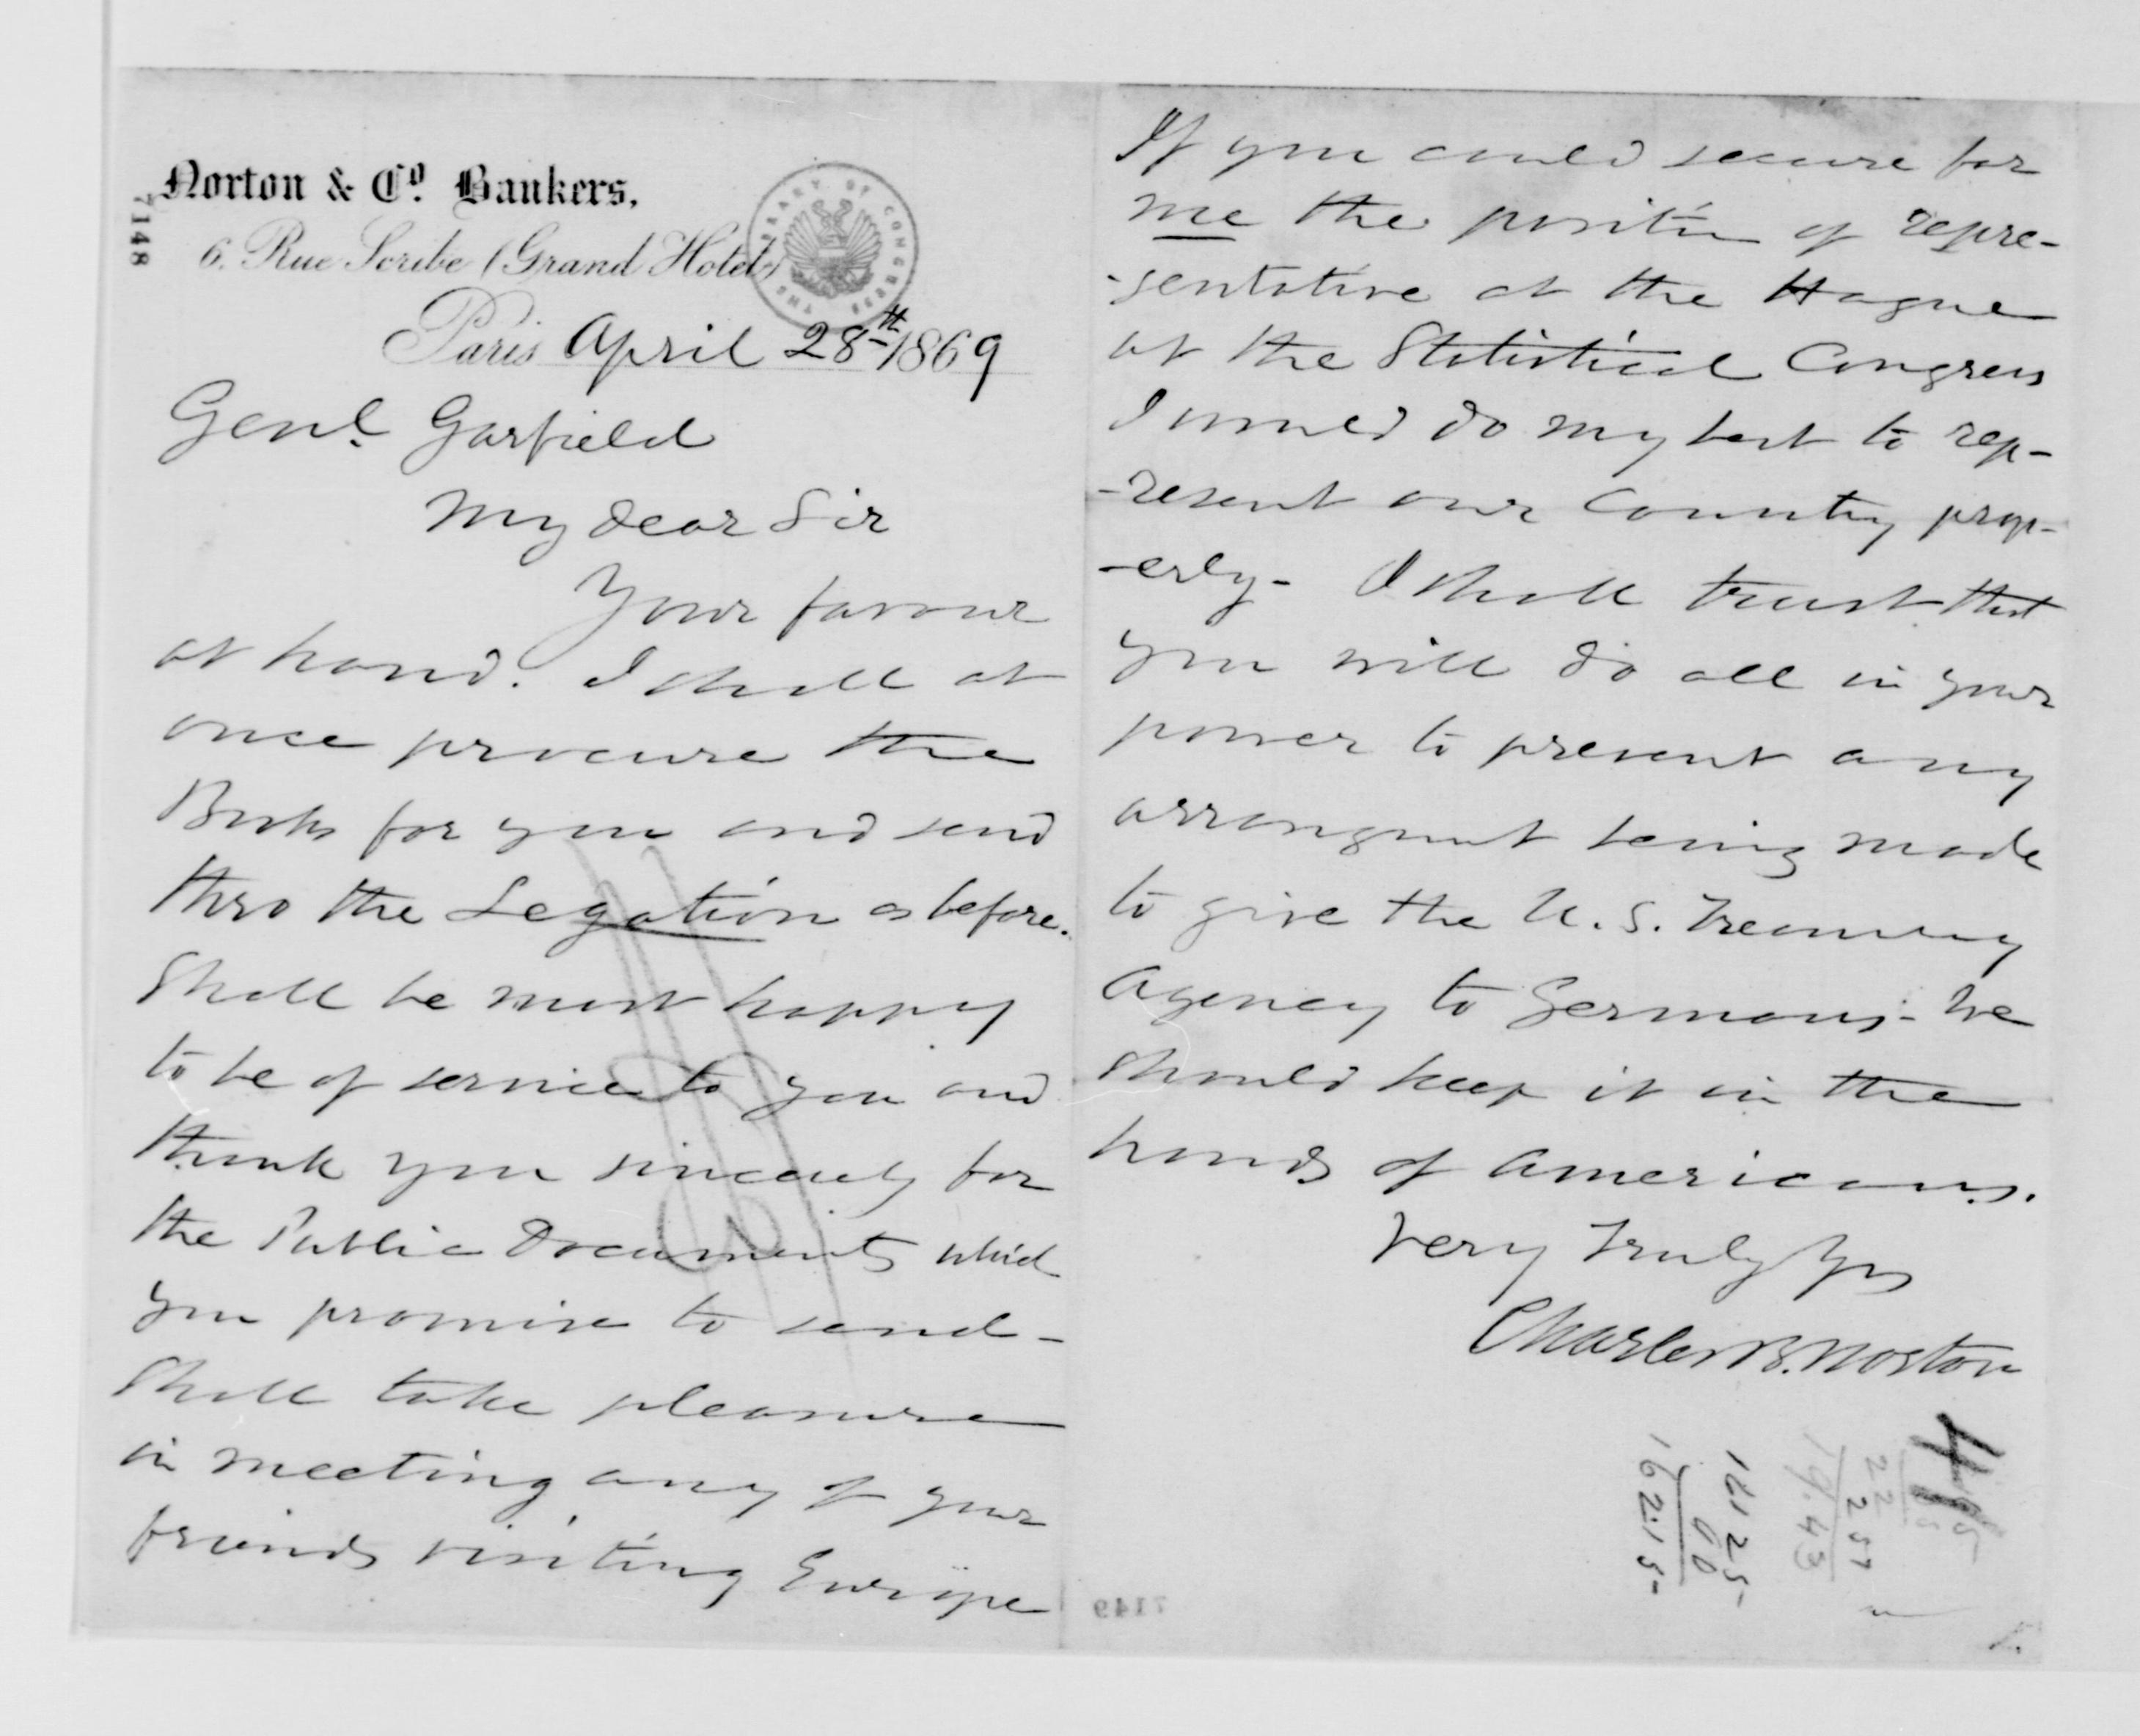 Norton & Co. Bankers,
6. Rue Scribe (Grand Hotel)
THE LIBRARY OF CONGRESS
7148
Paris April 28th 1869
Genl. Garfield
My dear Sir
Your favour
at hand. I shall at
once procure the
Books for you and send
thro the Legation as before.
Shall be most happy
to be of service to you and
thank you sincerely for
the Public Documents which
you promise to send -
Shall take pleasure
in meeting any of your
friends visiting Europe
If you could secure for
me the position of repre-
-sentative at the Hague
at the Statistical Congress
I would do my best to rep-
-resent our Country prop-
-erly - I shall trust that
you will do all in your
power to prevent any
arrangment being made
to give the U.S. Treasury
Agency to Germans - We
should keep it in the
hands of Americans.
Very Truly Yrs
Charles B. Norton
7149
19.43
162.15